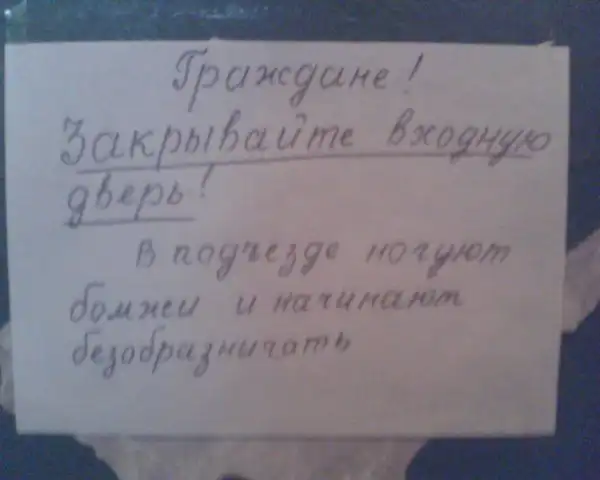 Граждане!
Закрывайте входную
дверь!
В подъезде ночуют
бомжи и начинают
безобразничать